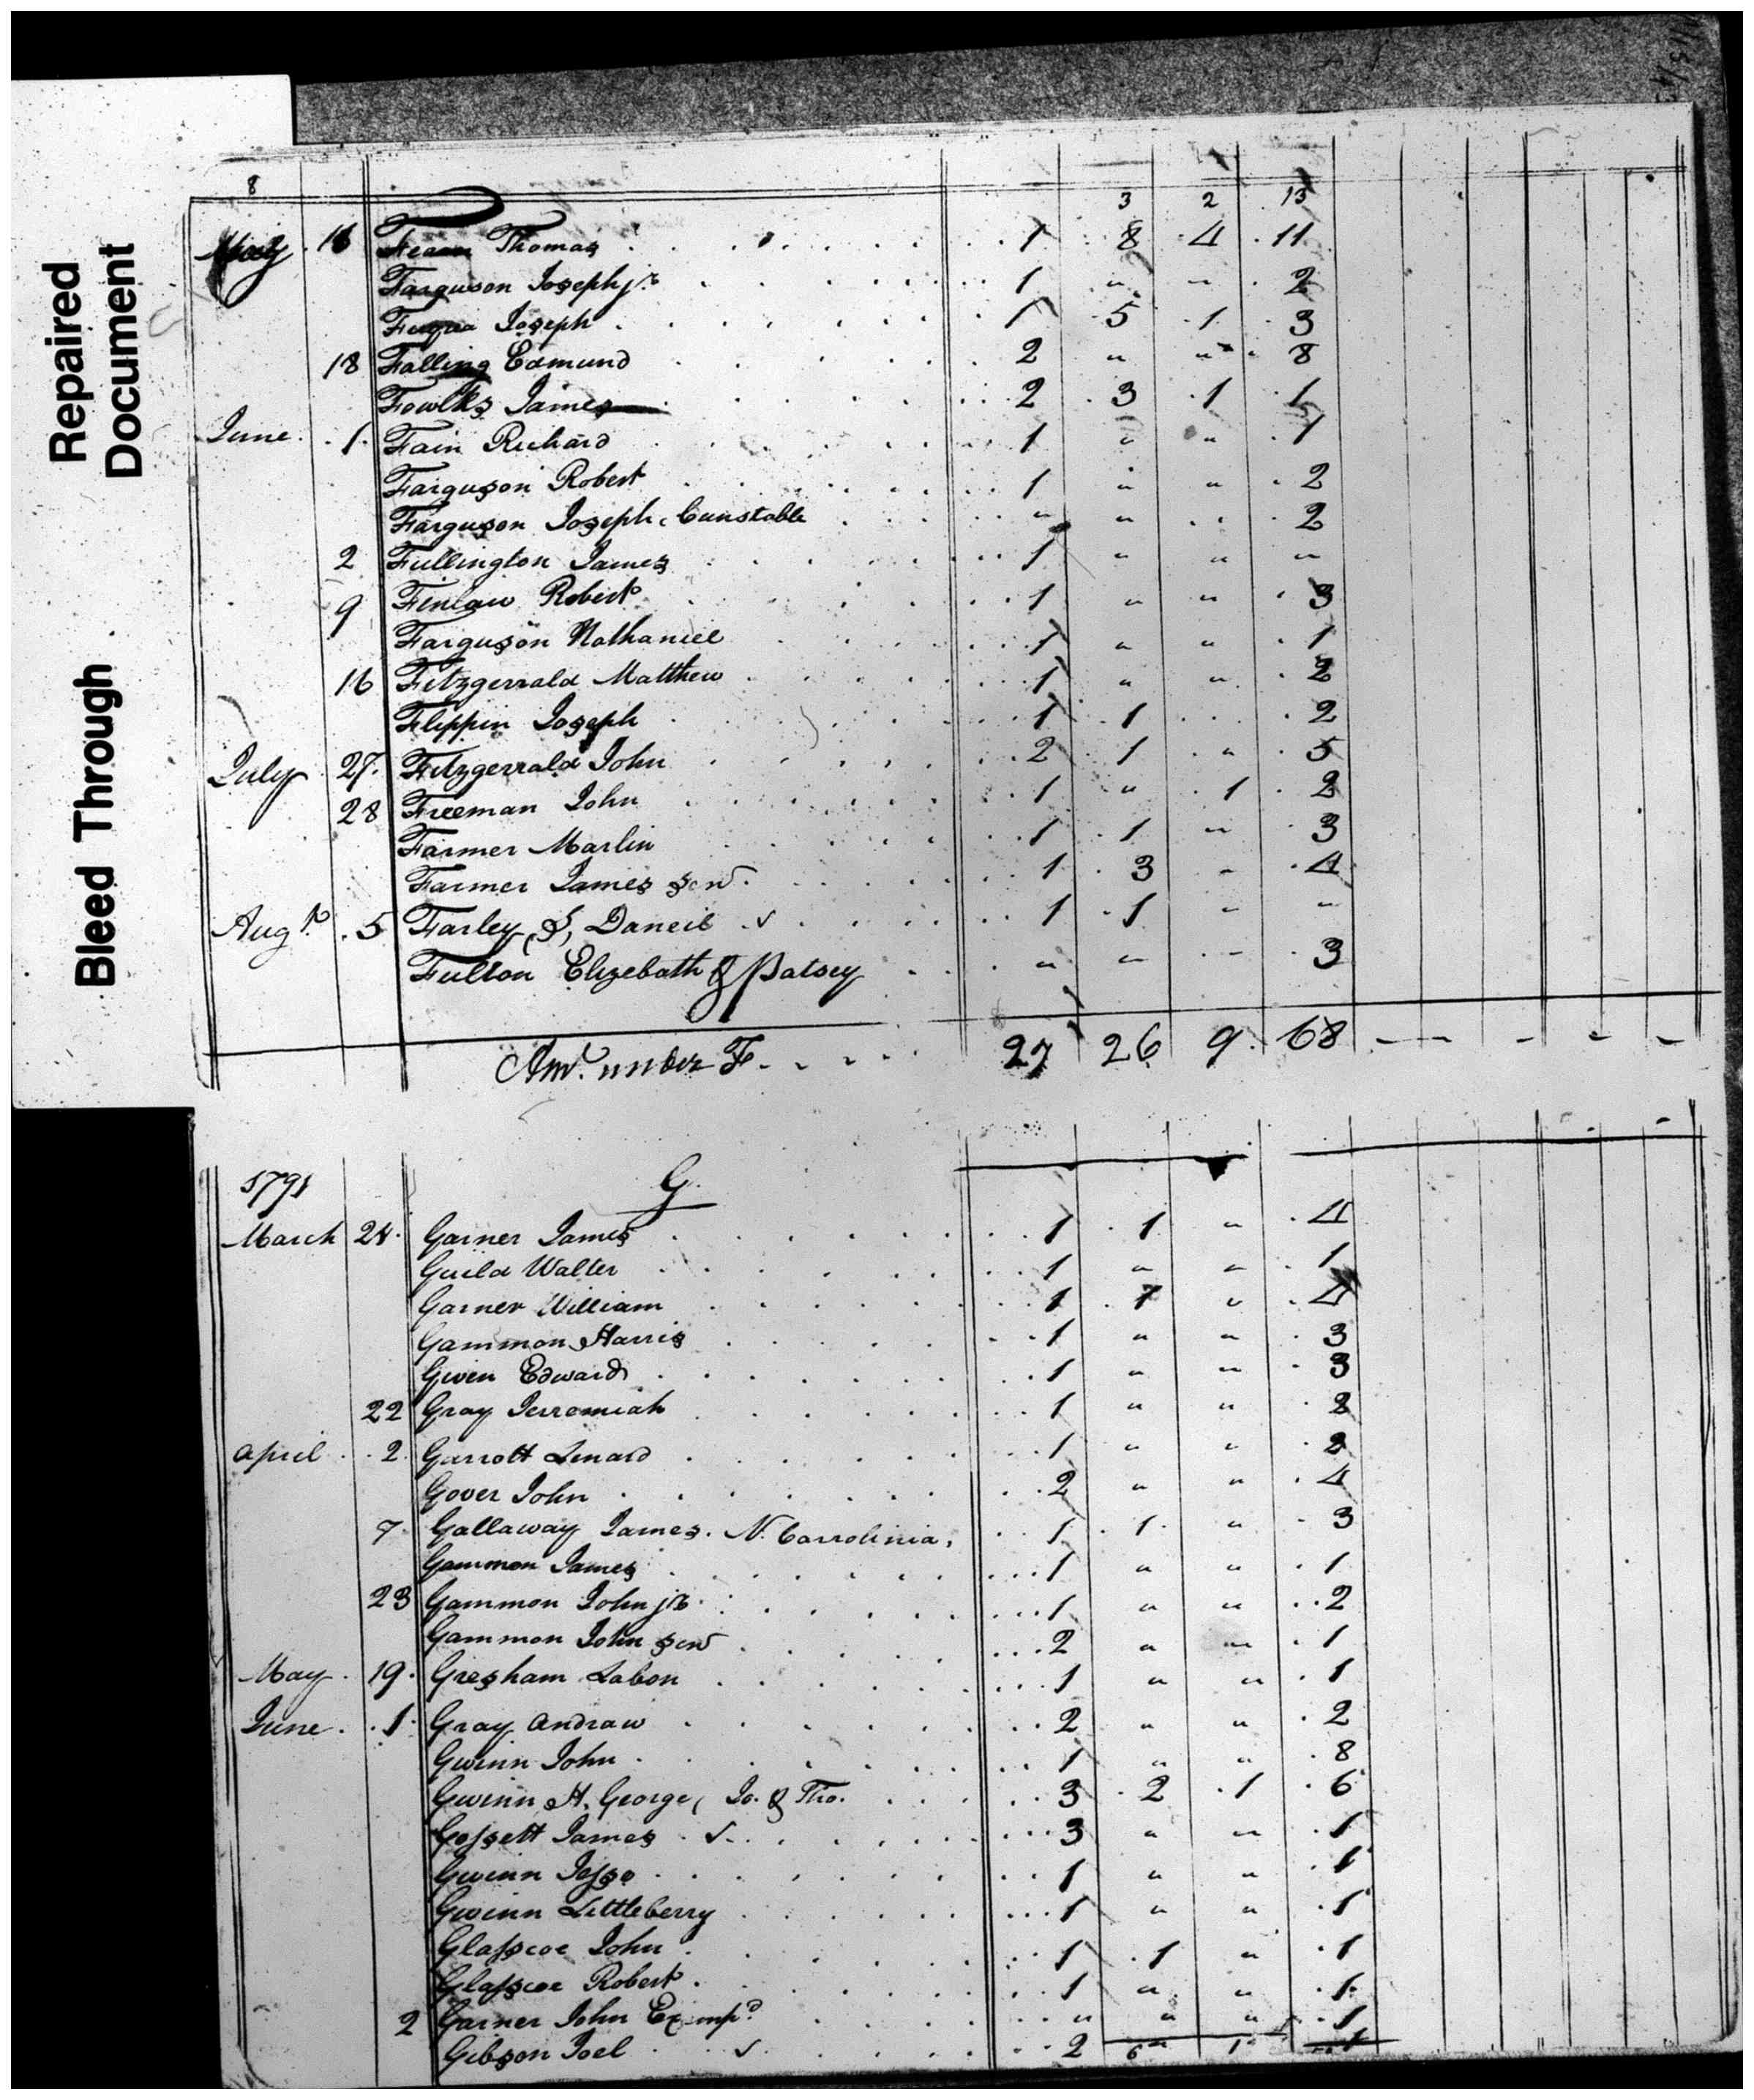 Repaired
Document
Bleed Through
8 3 2 13
May 16 Fearn Thomas 1 8 4 11
Farguson Joseph jr. 1 " " 2
Fuqua Joseph 1 5 1 3
18 Falling Edmund 2 " " 8
Fowlks James 2 3 1 1
June 1 Fain Richard 1 " " 1
Farguson Robert 1 " " 2
Farguson Joseph, Cunstable " " . 2
2 Fullington James 1 " " "
9 Finlaw Robert 1 " " 3
Farguson Nathaniel 1 " " 1
16 Fitzgerrald Matthew 1 " " 2
Flippin Joseph 1 1 . 2
July 27. Fitzgerrald John 2 1 " 5
28 Freeman John 1 " 1 2
Farmer Marlin 1 1 " 3
Farmer James senr. 1 3 - 4
Augt. 5 Farley, S, Daneil √ 1 1 - -
Fulton Elizebath & Patsey " " - 3
Amt. under F 27 26 9 68 - - - -
1791 G
March 21. Garner James 1 1 " 4
Guild Walter 1 " " 1
Garner William 1 7 " 4
Gammon Harris 1 " " 3
Given Edward 1 " " 3
22 Gray Jerromiah 1 " " 2
April 2 Garrott Lenard 1 " " 2
Gover John 2 " " 4
7 Gallaway James. N. Carrolinia, 1 1 " 3
Gammon James 1 " " 1
23 Gammon John jr. 1 " " 2
Gammon John senr 2 " " 1
May 19. Gresham Labon 1 " " 1
June 1 Gray Andraw 2 " " 2
Gwinn John 1 " " 8
Gwinn H. George, Jo. & Tho. 3 2 1 6
Gossett James √ 3 " " 1
Gwinn Jesse 1 " " 1
Gwinn Littleberry 1 " " 1
Glasscoe John 1 1 " 1
Glasscoe Robert 1 " " 1
2 Garner John Exempd. " " " 1
Gibson Joel √ 2 " " 1